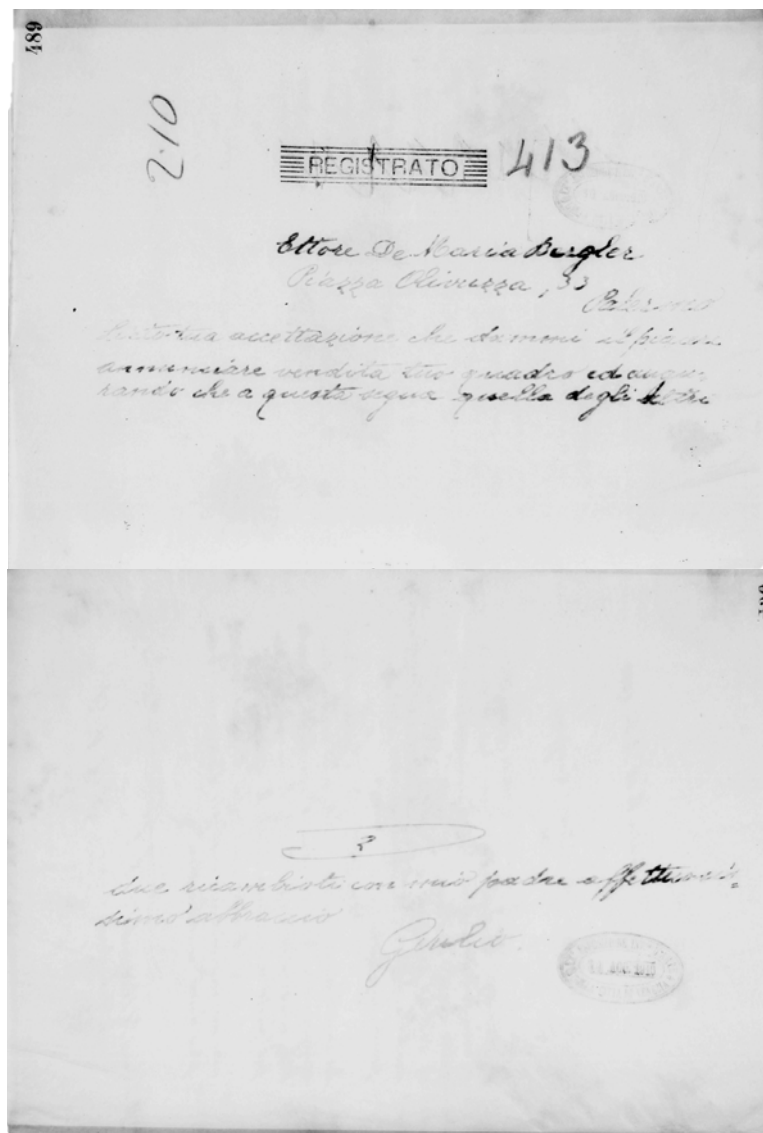 489
210
REGISTRATO 413
Ettore De Maria Bergler
Piazza Olivuzza, 33
Palermo
tua accettazione che dammi il
annunciare vendita tuo quadro ed augu-
rando che a questa segua quella degli altri
2
due ricambioti con mio padre affettuosis-
simo abbraccio
Giulio.